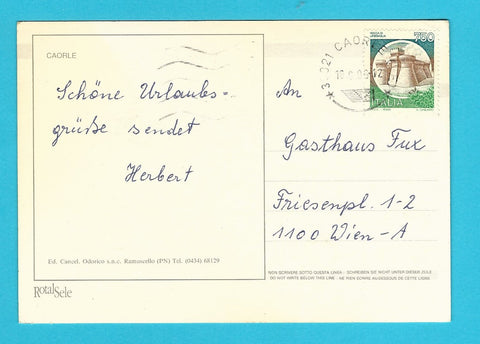 CAORLE
Schöne Urlaubs=
grüße sendet
Herbert
Ed. Cancel. Odorico s.n.c. Ramuscello (PN) Tel. (0434) 68129
Rotal Sele
CAORLE
750
ITALIA
An
Gasthaus Fux
Friesenpl. 1-2
1100 Wien-A
NON SCRIVERE SOTTO QUESTA LINEA - SCHREIBEN SIE NICHT UNTER DIESER ZEILE
DO NOT WRITE BELOW THIS LINE - NE RIEN ECRIRE AUDESSOUS DE CETTE LIGNE